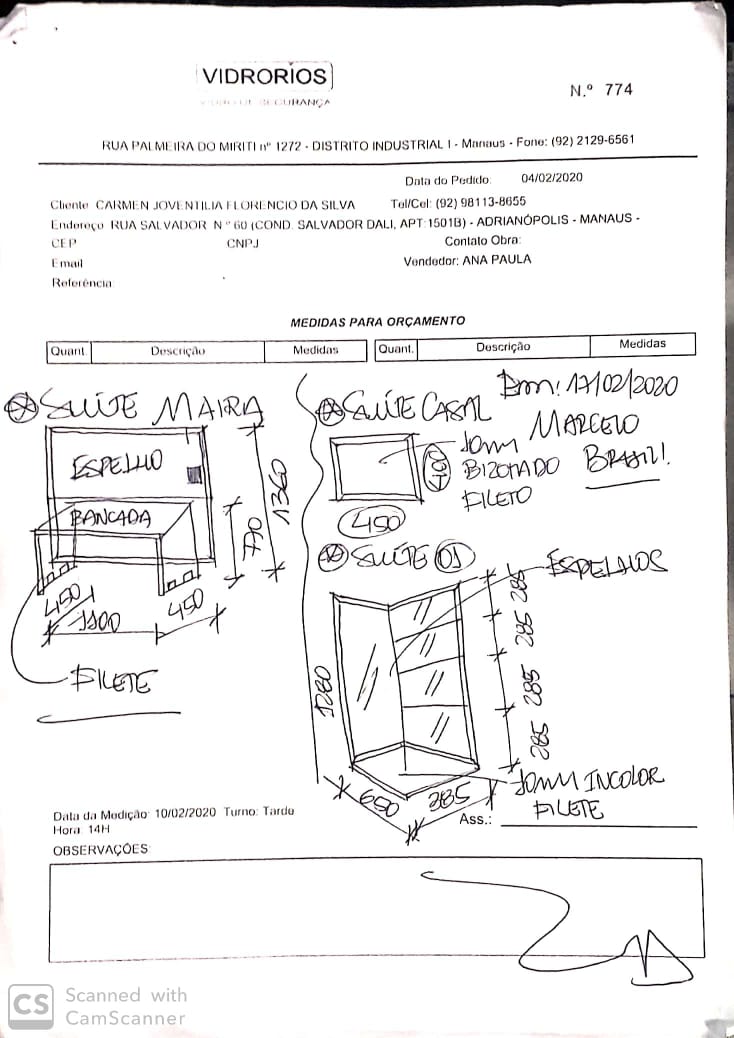 VIDRORIOS
VIDRO DE SEGURANÇA
N.º 774
RUA PALMEIRA DO MIRITI nº 1272 - DISTRITO INDUSTRIAL I - Manaus - Fone: (92) 2129-6561
Data do Pedido: 04/02/2020
Cliente CARMEN JOVENTILIA FLORENCIO DA SILVA Tel/Cel: (92) 98113-8655
Endereço RUA SALVADOR N º 60 (COND. SALVADOR DALI, APT:1501B) - ADRIANÓPOLIS - MANAUS -
CEP CNPJ Contato Obra:
Email Vendedor: ANA PAULA
Referência:
MEDIDAS PARA ORÇAMENTO
Quant. Descrição Medidas Quant. Descrição Medidas
SUÍTE MAIRA
ESPELHO
BANCADA
1360
770
450
1100
450
FILETE
SUÍTE CASAL
Em: 17/02/2020
MARCELO
BRASIL!
BIZOTADO
FILETO
450
SUÍTE 01
ESPELHOS
285
285
285
285
1280
650
385
10MM INCOLOR
FILETE
Data da Medição: 10/02/2020 Turno: Tarde
Hora: 14H
Ass.:
OBSERVAÇÕES
CS Scanned with
CamScanner